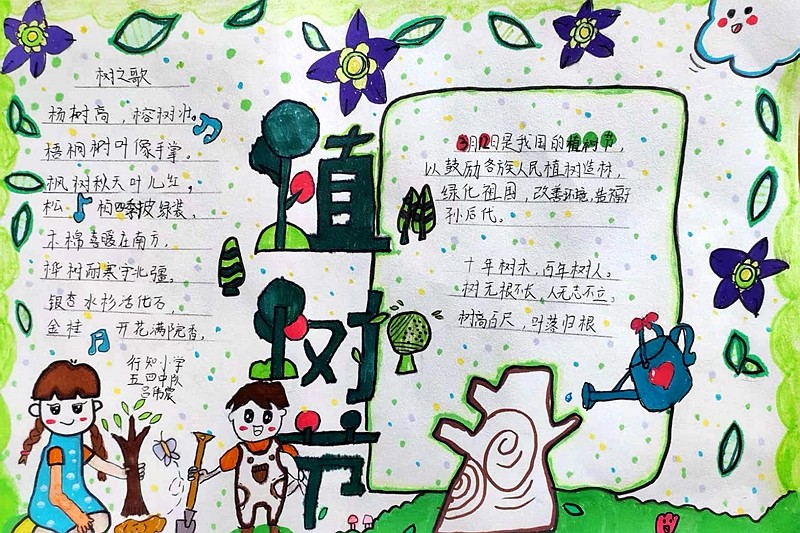 树之歌
杨树高，榕树壮。
梧桐树叶像手掌。
枫树秋天叶儿红，
松柏四季披绿装。
木棉喜暖在南方，
桦树耐寒守北疆。
银杏水杉活化石，
金桂开花满院香。
行知小学
五四中队
植树节
3月12日是我国的植树节，
以鼓励各族人民植树造林，
绿化祖国，改善环境，造福子
孙后代。
十年树木，百年树人。
树无根不长，人无志不立。
树高百尺，叶落归根